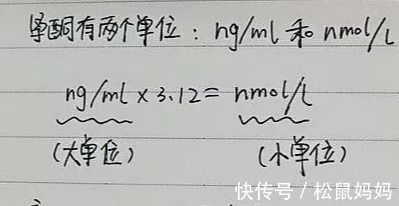 孕酮有两个单位：ng/ml 和 nmol/L
ng/ml × 3.12 = nmol/L
(大单位) (小单位)
快传号 / 松鼠妈妈